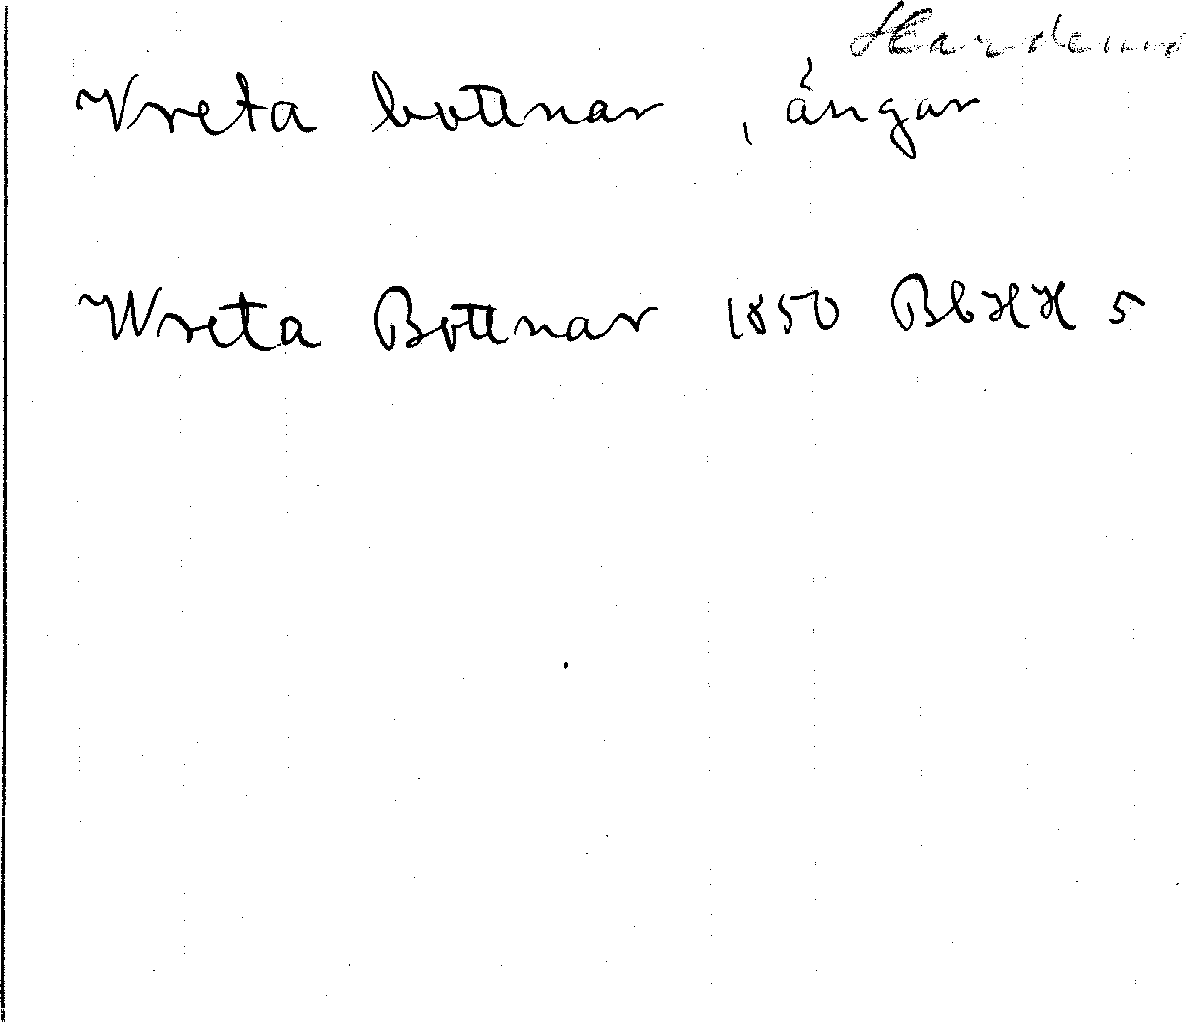 Hardemo
Vreta bottnar, ängar
Wreta Bottnar 1850 BlHH 5